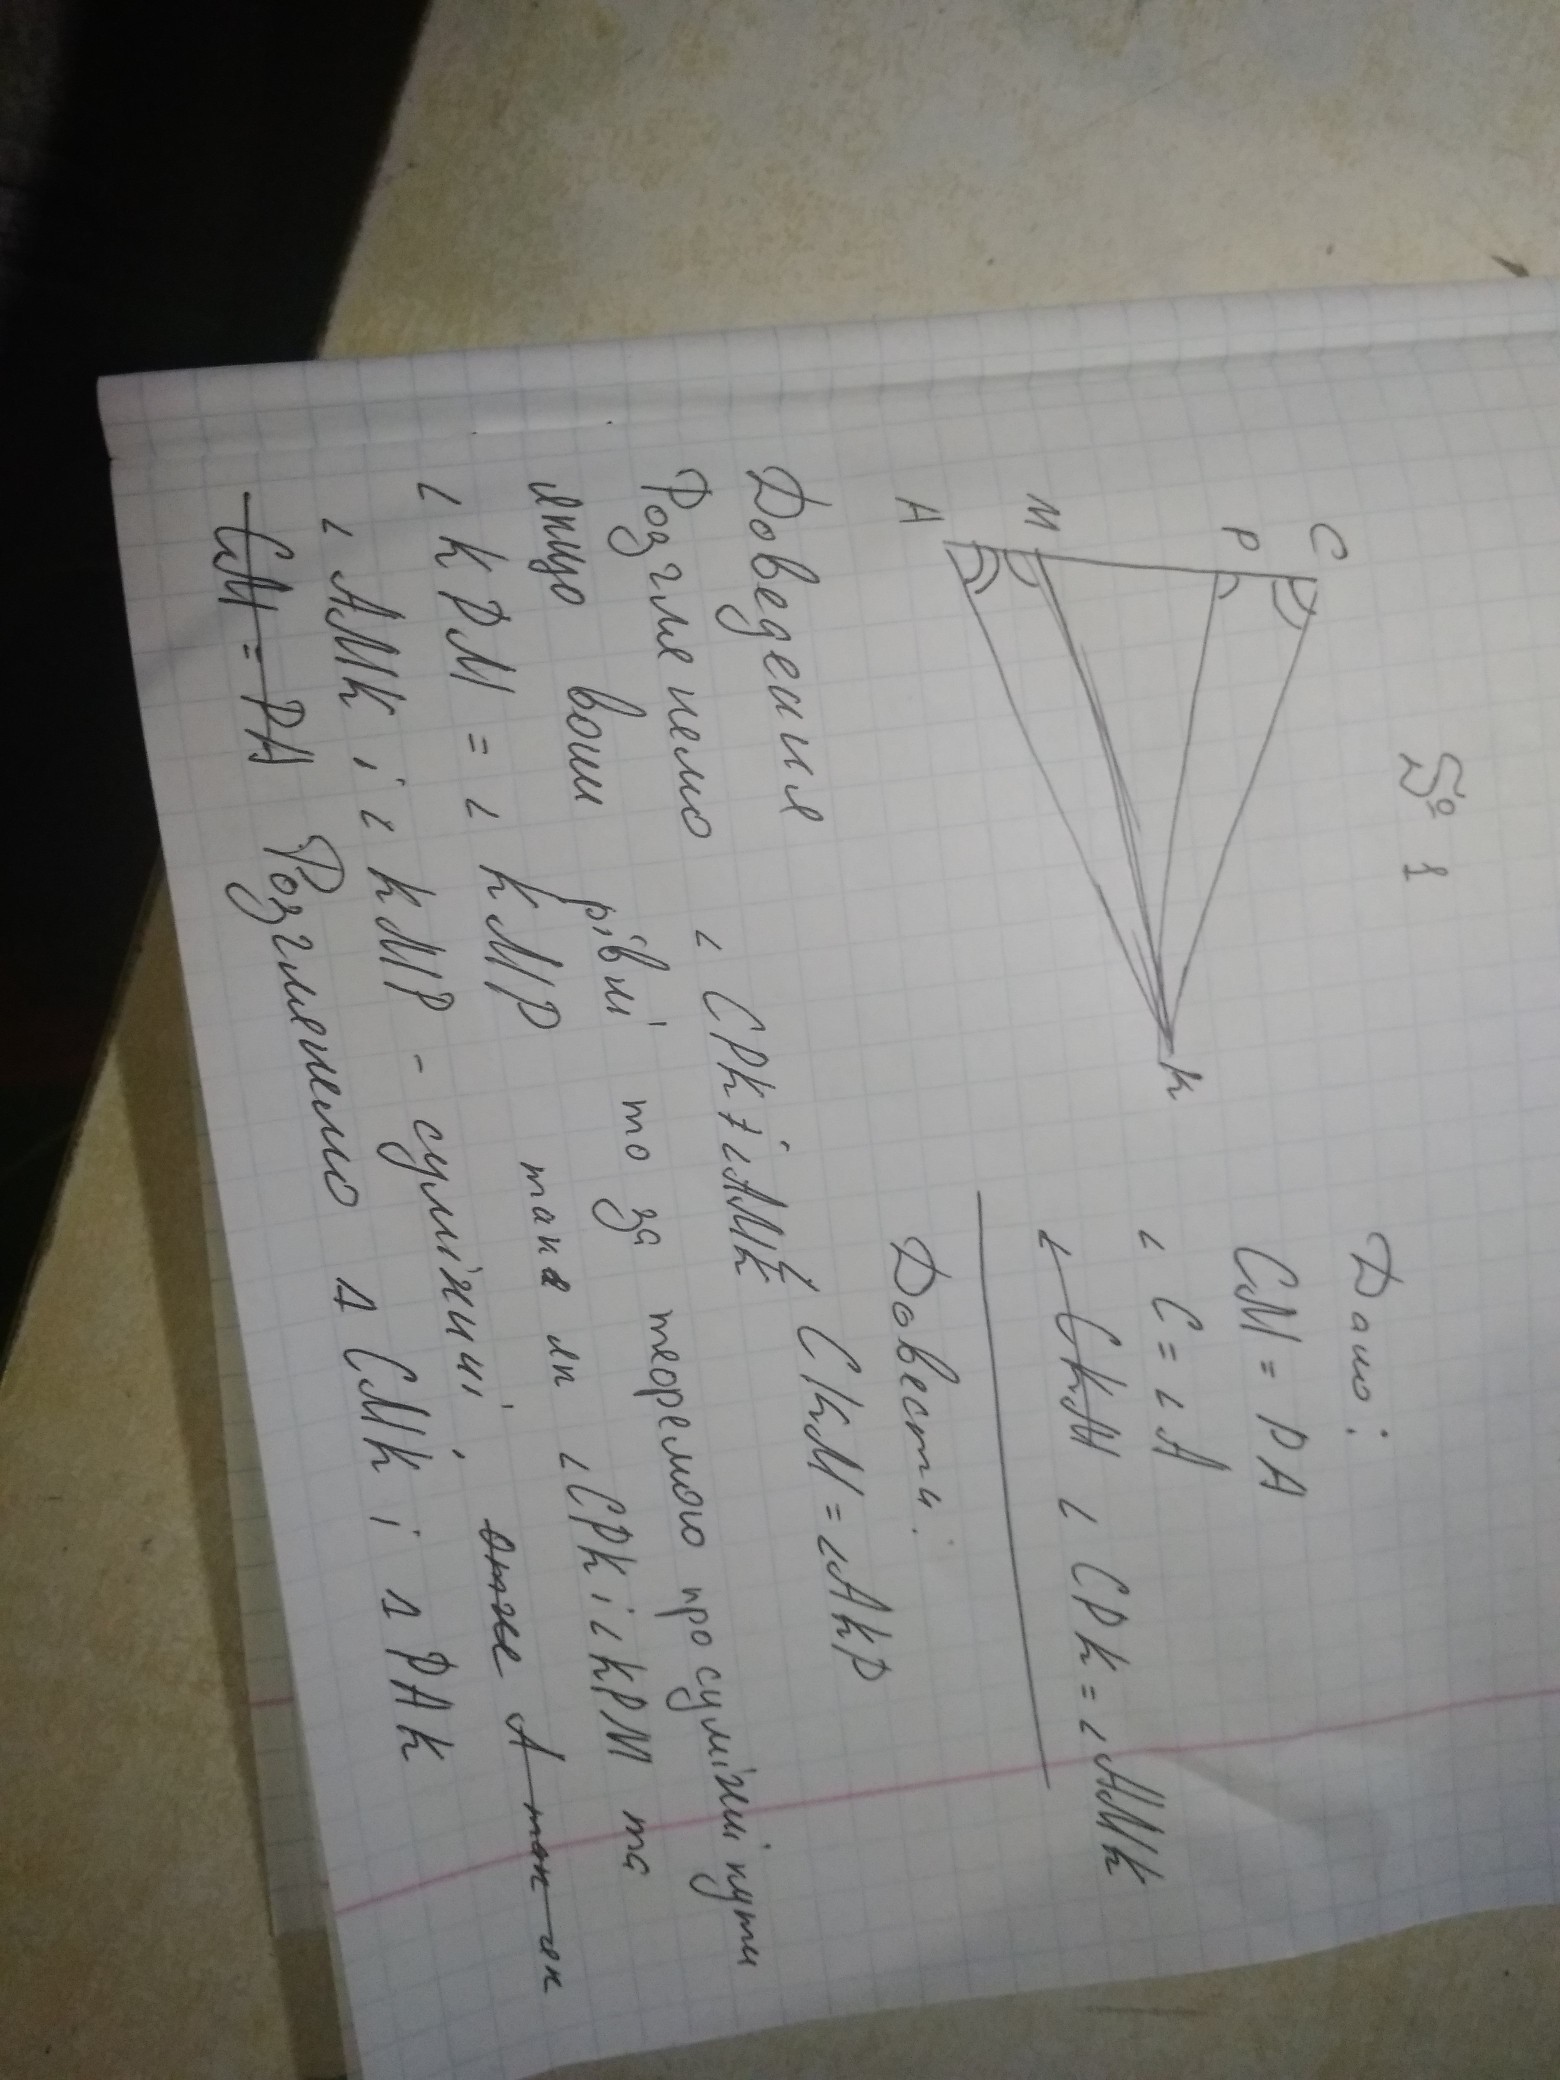 № 1
C
P
M
A
K
Дано:
CM = PA
∠ C = ∠ A
∠ CKM ∠ CPK = ∠ AMK
Довести:
∠ CKM = ∠ AKP
Доведення
Розгленемо ∠ CPK і ∠ AMK
якщо вони рівні то за теоремою про суміжні кути
∠ KPM = ∠ KMP так як ∠ CPK і ∠ KPM та
∠ AMK і ∠ KMP - суміжні, отже А так як
CM = PA Розгленемо Δ CMK і Δ PAK